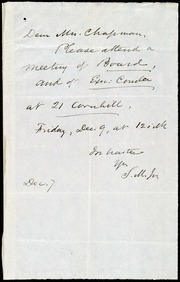 Dear Mrs. Chapman,
Please attend a
meeting of Board,
and of Exec. Comtee
at 21 Cornhill,
Friday, Dec. 9, at 12 o'clk
In haste
Yrs
S. M. Jr.
Dec. 7